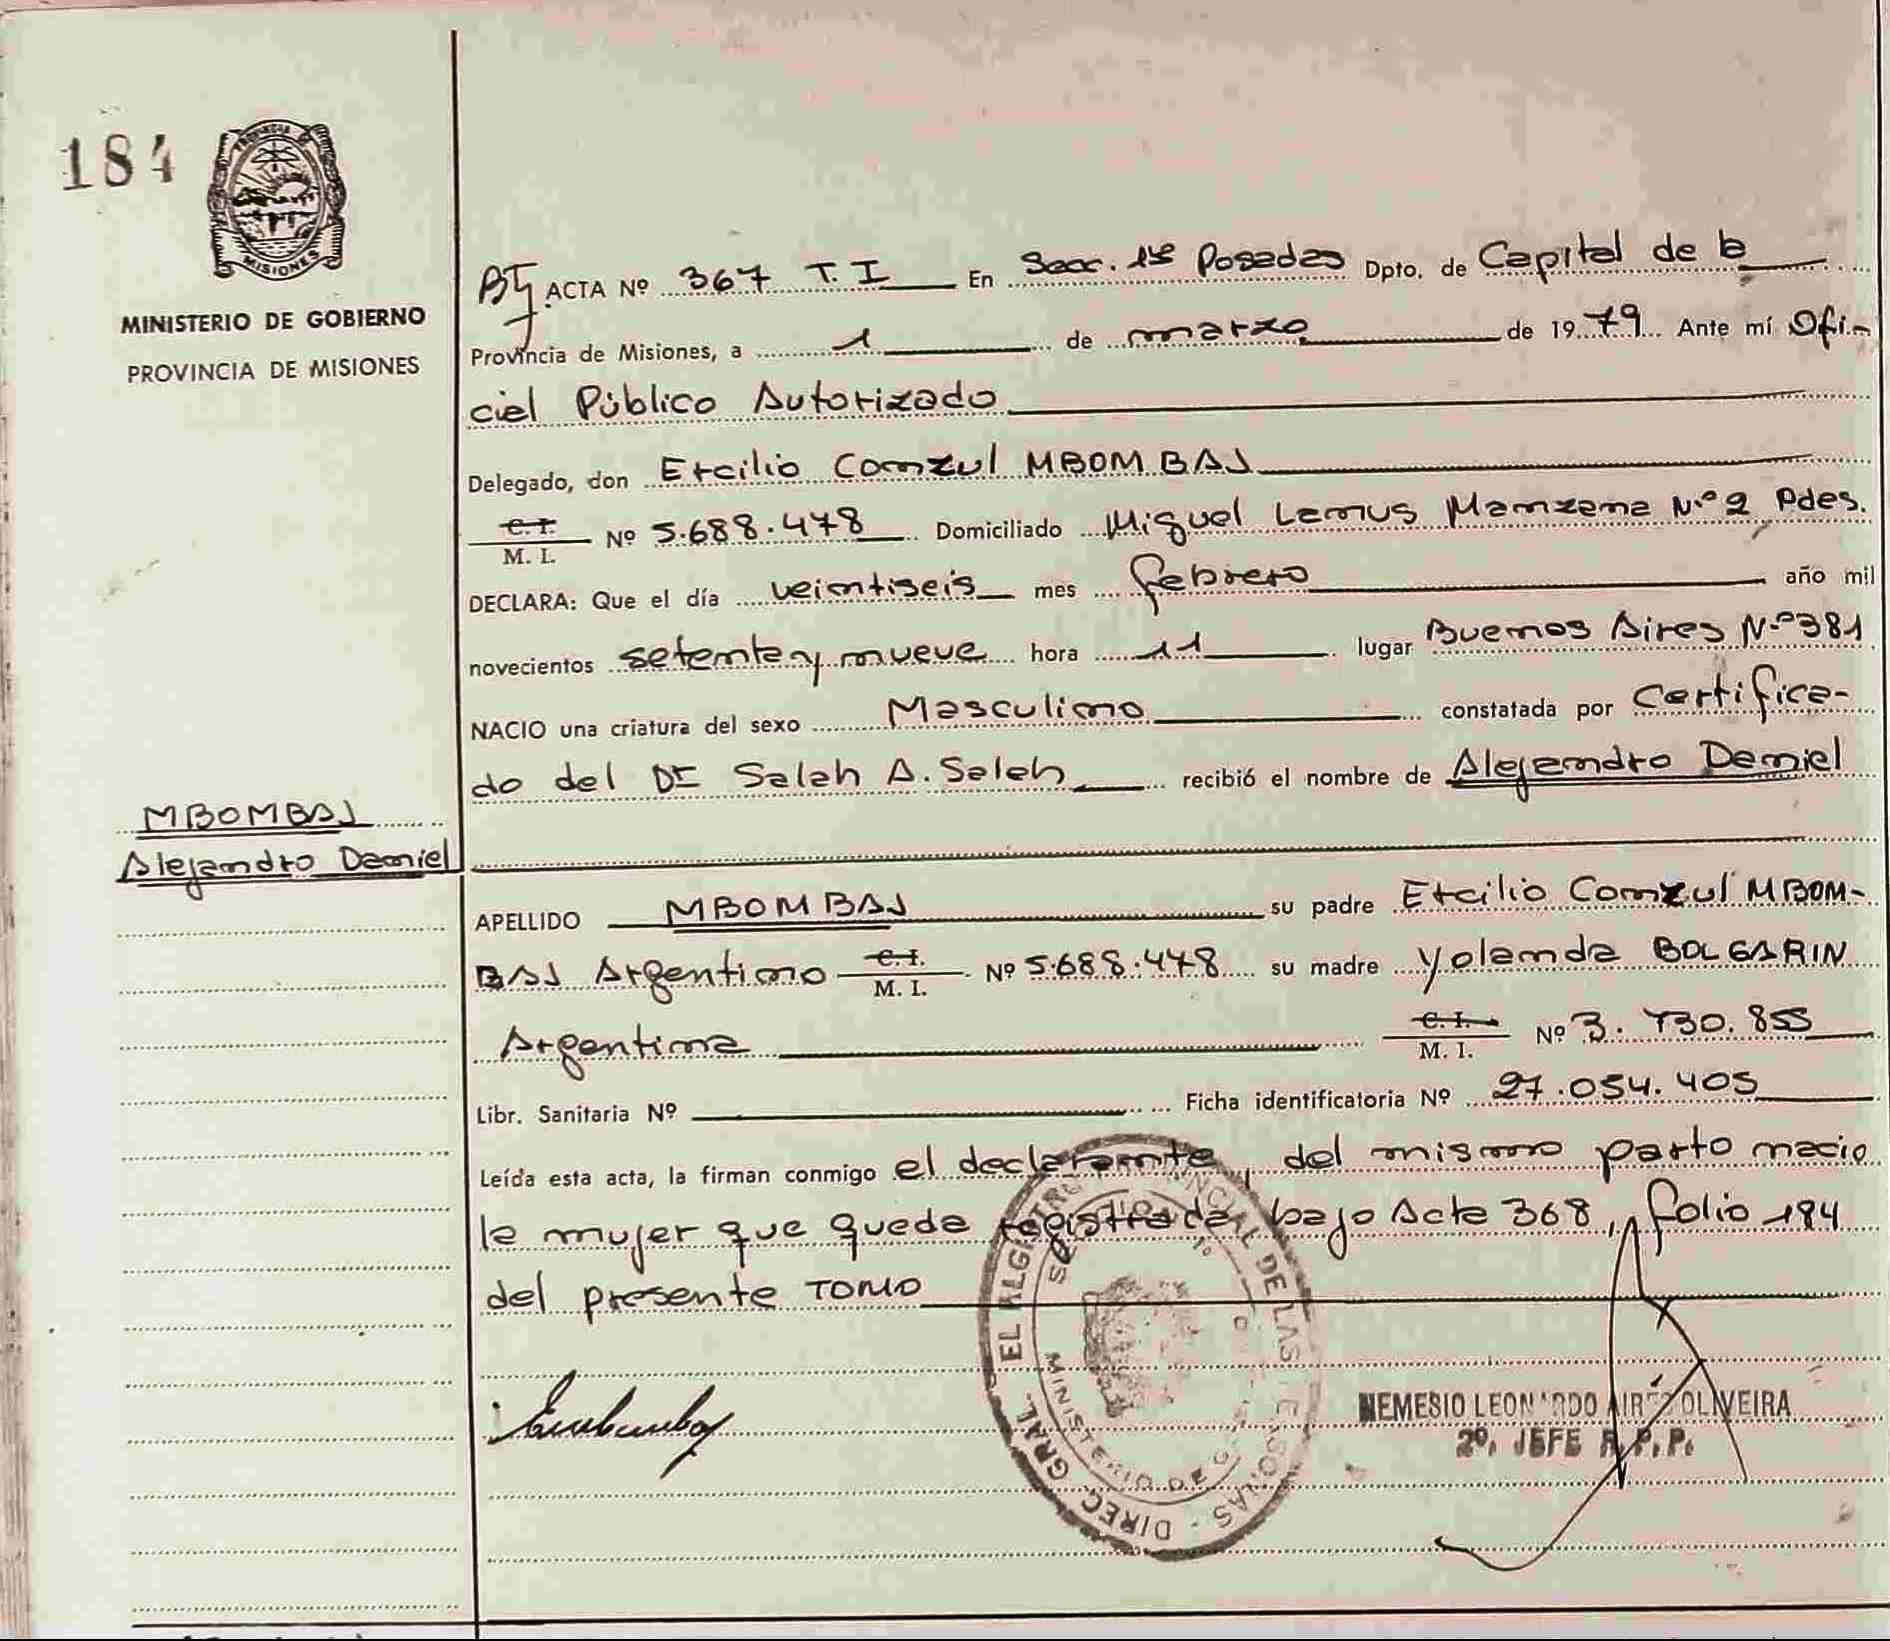 184
MISIONES
MINISTERIO DE GOBIERNO
PROVINCIA DE MISIONES
ACTA Nº 367 T. I En Secc. 1ra Posadas Dpto. de Capital de la
Provincia de Misiones, a 1 de marzo de 1979 Ante mí Ofi-
cial Público Autorizado
Delegado, don Ercilio Conzul MBOMBAJ
C. I.
M. I. Nº 5.688.478 Domiciliado Miguel Lanus Manzana Nº 2 Pdas.
DECLARA: Que el día veintiseis mes febrero año mil
novecientos setenta y nueve hora 11 lugar Buenos Aires Nº 381
NACIO una criatura del sexo Masculino constatada por Certifica-
do del Dr Saleh A. Saleh recibió el nombre de Alejandro Daniel
MBOMBAJ
Alejandro Daniel
APELLIDO MBOMBAJ su padre Ercilio Conzul MBOM-
BAJ Argentino C. I. M. I. Nº 5.688.478 su madre Yolanda BOLGARIN
Argentina C. I. M. I. Nº 3.730.855
Libr. Sanitaria Nº Ficha identificatoria Nº 27.054.405
Leída esta acta, la firman conmigo el declarante, del mismo parto nacio
la mujer que queda registrada bajo Acta 368, folio 184
del presente TOMO
DIREC. GRAL. DE LAS PERSONAS
MINISTERIO DE
NEMESIO LEONARDO AIRES OLIVEIRA
2º. JEFE R.P.P.